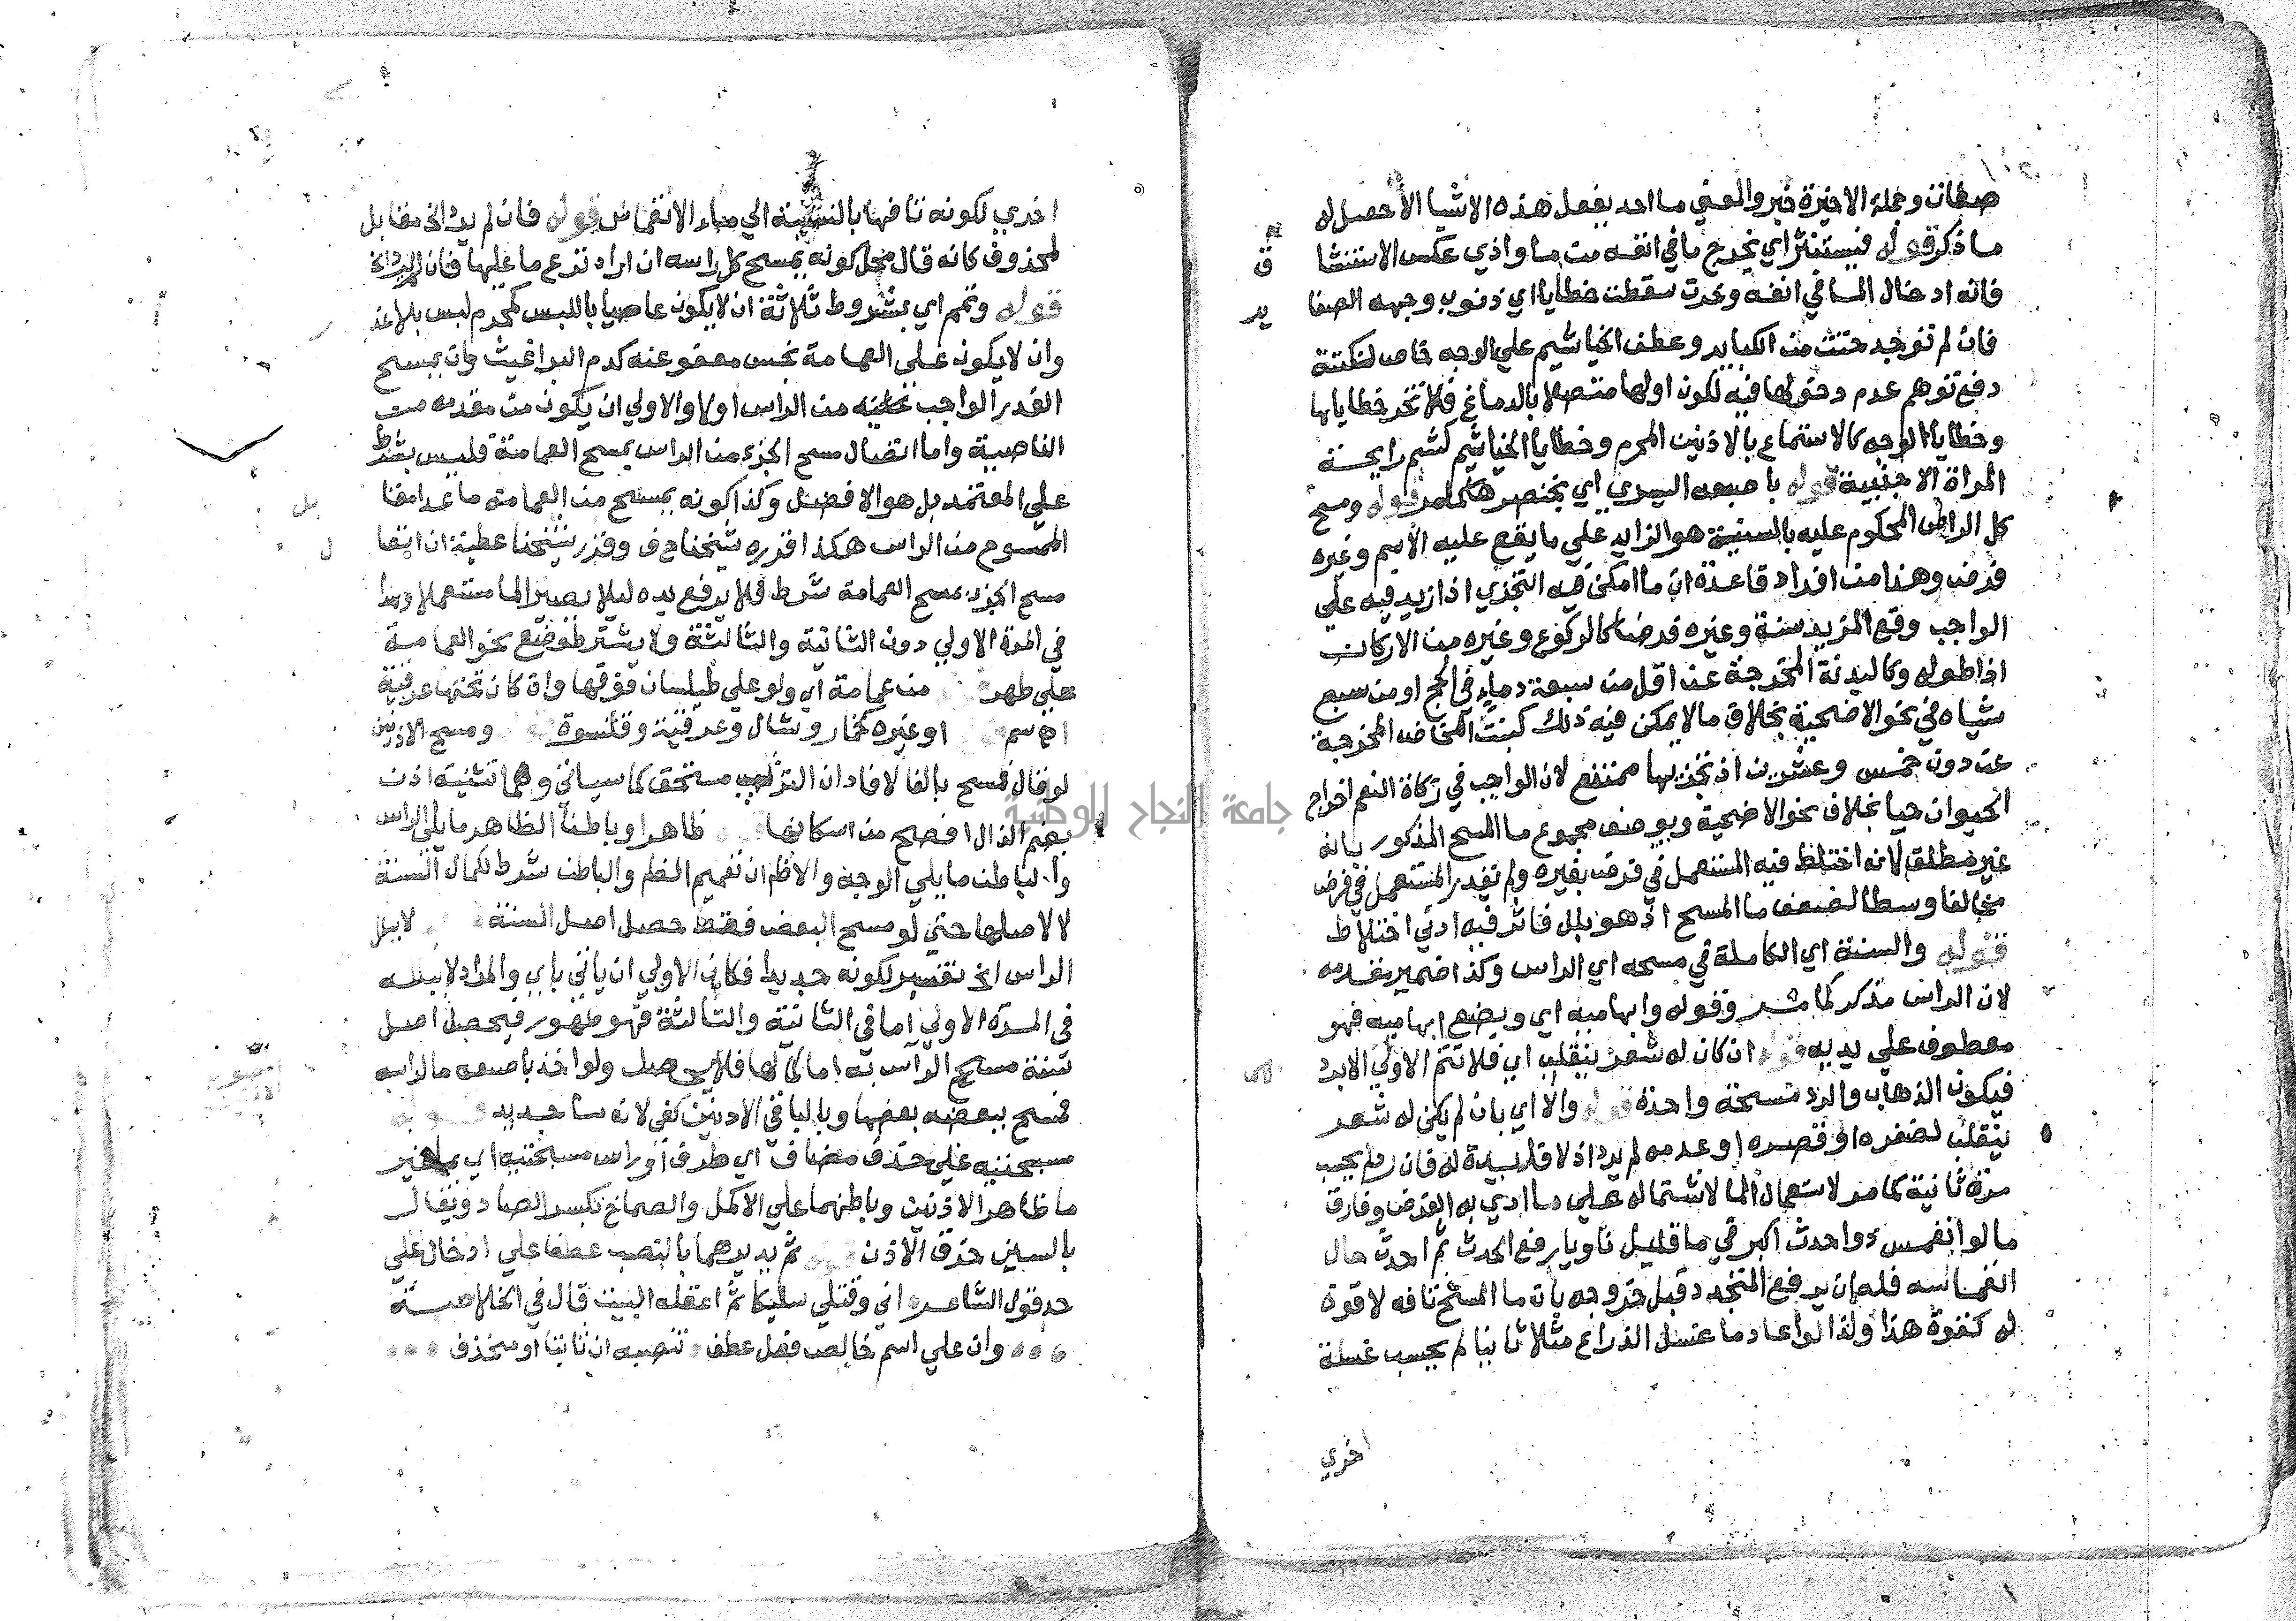 صفتان وجملة الاخيرة خبر والمعني ما احد يفعل هذه الاشيا الا حصل له
ما ذكر قوله فيستنثر اي يخرج ما في انفه من ما واذي عكس الاستنشا
ق
فانه ادخال الما في انفه وخرت سقطت خطايا اي ذنوب وجهه الصغا
ير
فان لم توجد حتت من الكباير وعطف الخياشيم علي الوجه خاص لنكتة
دفع توهم عدم دخولها فيه لكون اولها متصلا بالدماغ فلا تخر خطاياها
وخطايا الوجه كالاستماع بالاذنين المحرم وخطايا الخياشيم كشم رايحة
المراة الاجنبية قوله باصبعه اليسري اي بخنصرها كما مر قوله ومسح
كل الراس المحكوم عليه بالسنية هو الزايد علي ما يقع عليه الاسم وغيره
فرض وهذا من افراد قاعدة ان ما امكن فيه التجزي اذا زيد فيه علي
الواجب وقع المزيد سنة وغيره فرضا كالركوع وغيره من الاركان
اذا طوله وكالبدنة المخرجة عن اقل من سبعة دماء في الحج او من سبع
شياه في نحو الاضحية بخلاف ما لا يمكن فيه ذلك كبنت المخاض المخرجة
عن دون خمس وعشرين اذ تجزيها ممتنع لان الواجب في زكاة النعم اخراج
الحيوان حيا بخلاف نحو الاضحية ويوصف مجموع ما المسح المذكور بانه
غير مطلق لانه اختلط فيه المستعمل في فرض بغيره ولم نقدر المستعمل في فرض
مخالفا وسطا لضعف ما المسح اذ هو بلل فاثر فيه ادني اختلاط
قوله والسنة اي الكاملة في مسحه اي الراس وكذا ضمير مقدمه
لان الراس مذكر كما مر وقوله وابهاميه اي ويضع ابهاميه فهو
معطوف علي يديه قوله ان كان له شعر ينقلب اي فلا تتم الاولي الا بد
لك
فيكون الذهاب والرد مسحة واحدة قوله والا اي بان لم يكن له شعر
ينقلب لضفره او قصره او عدمه لم يرد اذ لا فايدة له فان رد لم يحسب
مرة ثانية كما مر لاستعمال الما لاشتماله علي ما ادي به الفرض وفارق
ما لو انغمس ذو احدث اكبر في ما قليل ناويا رفع الحدث ثم احدث حال
انغماسه فله ان يرفع المتجدد قبل خروجه بان ما المسح تافه لا قوة
له كقوة هذا ولذا لو اعاد ما غسل الذراع مثلا ثانيا لم يحسب غسلة
اخري
اخري لكونه تافها بالنسبة الي ماء الانغماس قوله فان لم يرد الخ مقابل
لمحذوف كانه قال محل كونه يمسح كل راسه ان اراد نزع ما عليها فان لم يرد الخ
قوله وتمم اي بشروط ثلاثة ان لا يكون عاصيا باللبس كمحرم لبس بلا عذ
ر
وان لا يكون علي العمامة نجس معفو عنه كدم البراغيث وان يمسح
القدر الواجب مسحه من الراس اولا والاولي ان يكون من مقدمه من
الناصية واما اتصال مسح الجزء من الراس بمسح العمامة فليس بشرط
علي المعتمد بل هو الافضل وكذا كونه يمسح من العمامة ما عدا مقا
بل
الممسوح من الراس هكذا قرره شيخنا ح ف وقرر شيخنا عطية ان اتصا
ل
مسح الجزء بمسح العمامة شرط فلا يرفع يده ليلا يصير الما مستعملا وهذا
في المرة الاولي دون الثانية والثالثة ولا يشترط وضع نحو العمامة
علي طهر من عمامة اي ولو علي طيلسان فوقها وان كان تحتها عرقية
او غيره كخمار وشال وعرقية وقلنسوة ومسح الاذنين
لو قال فمسح بالفا لافاد ان الترتيب مستحق كما سياتي وهما تثنية اذن
بضم الذال افصح من اسكانها ظاهرا وباطنا الظاهر ما يلي الراس
والباطن ما يلي الوجه والاظهر ان تعميم الظهر والباطن شرط لكمال السنة
لا لاصلها حتي لو مسح البعض فقط حصل اصل السنة لا ببلل
الراس الخ تفسير لكونه جديدا فكان الاولي ان ياتي باي والمراد لا ببلله
في المرة الاولي اما في الثانية والثالثة فهو طهور فيحصل اصل
سنة مسح الراس به اما كمالها فلا يحصل ولو اخذ باصبعه ما لراسه
فمسح ببعضه بعضها وبالباقي الاذنين كفي لانه ما جديد قوله
مسبحتيه علي حذف مضاف اي طرف او راس مسبحتيه اي بما غير
ما ظاهر الاذنين وباطنهما علي الاكمل والصماخ بكسر الصاد ويقال
بالسين خرق الاذن قوله ثم يديرهما بالنصب عطفا علي ادخال علي
حد قول الشاعر اني وقتلي سليكا ثم اعقله البيت قال في الخلاصة
وان علي اسم خالص فعل عطف تنصبه ان ثابتا او منحذف
جامعة النجاح الوطنية